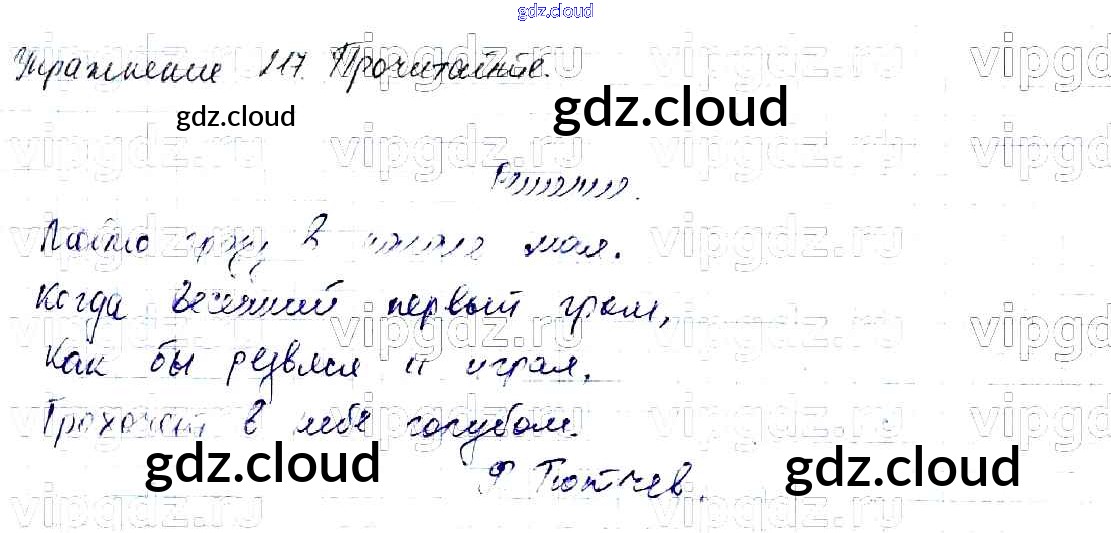 gdz.cloud
Упражнение 217. Прочитайте.
gdz.cloud gdz.cloud
vipgdz.ru
Люблю грозу в начале мая.
Когда весенний первый гром,
Как бы резвяся и играя.
Грохочет в небе голубом.
gdz.cloud gdz.cloud
Ф Тютчев.